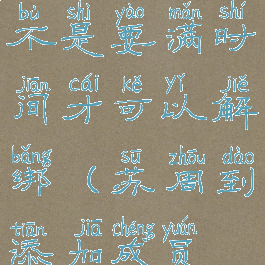 bú shì yào mǎn shí
不是要满时
jiān cái kě yǐ jiě
间才可以解
bǎng sū zhōu dào
绑（苏周到
tiān jiā chéng yuán
添加成员